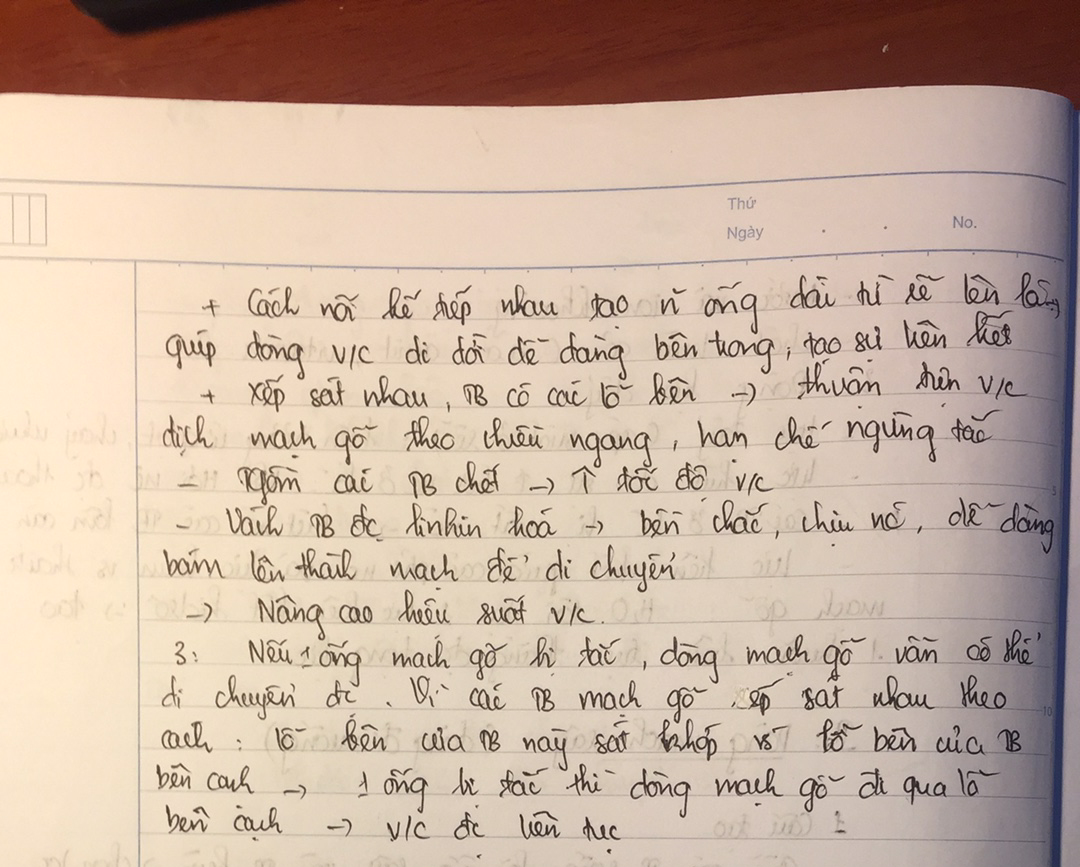 Thứ
Ngày . . No.
+ Cách nối kế tiếp nhau tạo n ống dài từ rễ lên lá →
giúp dòng v/c di dời dễ dàng bên trong, tạo sự liên kết
+ Xếp sát nhau, TB có các lỗ bên → thuận tiện v/c
dịch mạch gỗ theo chiều ngang, hạn chế ngừng tắc
- gồm các TB chết → ↑ tốc độ v/c
- Vách TB đc linhin hoá → bền chắc, chịu nc, dễ dàng
bám lên thành mạch để di chuyển
→ Nâng cao hiệu suất v/c.
3: Nếu 1 ống mạch gỗ bị tắc, dòng mạch gỗ vẫn có thể
di chuyển đc. Vì các TB mạch gỗ xếp sát nhau theo
cách: lỗ bên của TB này sát khớp vs lỗ bên của TB
bên cạnh → 1 ống bị tắc thì dòng mạch gỗ đi qua lỗ
bên cạnh → v/c đc liên tục